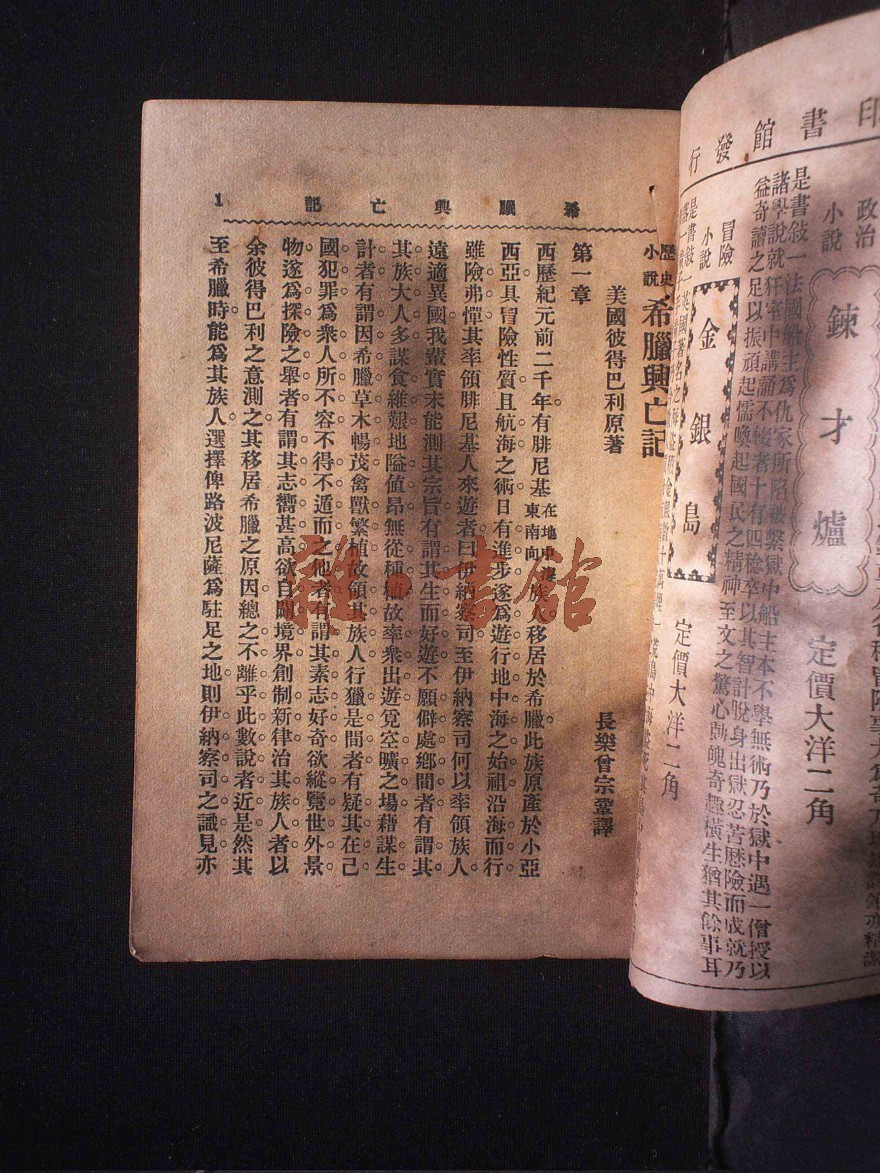 印書館發行
政治小說
鍊才爐
定價大洋二角
是書敍一法國船主爲仇家所陷被繫獄中船主本不學無術乃於獄中遇一僧授以
諸學說就犴室中講誦不輟者十有四稔卒以其智計脫身出獄忍苦歷險而成就乃
益奇讀之足以振頑起懦喚起國民之精神至文之驚心動魄奇趣橫生猶其餘事耳
冒險小說
金銀島
定價大洋二角
希臘興亡記 1
歷史小說 希臘興亡記
美國彼得巴利原著
長樂曾宗鞏譯
第一章
西歷紀元前二千年有腓尼基在地中海東南向族人移居於希臘此族原產於小亞
西亞具冒險性質且航海之術日有進步遂爲遊行地中海之始祖沿海而行
雖險弗憚其率領腓尼基人來遊者曰伊納察司至伊納察司何以率領族人
遠適異國我輩實未能測其宗旨有謂其生而好遊不願僻處鄉間者有謂其
其族大人多謀食維艱地隘値昂無從種植故率衆出遊覓空曠之場藉謀生
計者有謂因希臘草木暢茂禽獸繁植故領其族人行獵是間者有疑其在己
國犯罪爲衆人所不容不得不遁而之他者有謂其素志好奇欲縱覽世外景
物遂爲探險之舉者有謂其志嚮甚高欲自闢境界創制新律治其族人者以
余彼得巴利之意測之其移居希臘之原因總之不離乎此數說者近是然其
至希臘時能爲其族人選擇俾路波尼薩爲駐足之地則伊納察司之識見亦
雜·書館